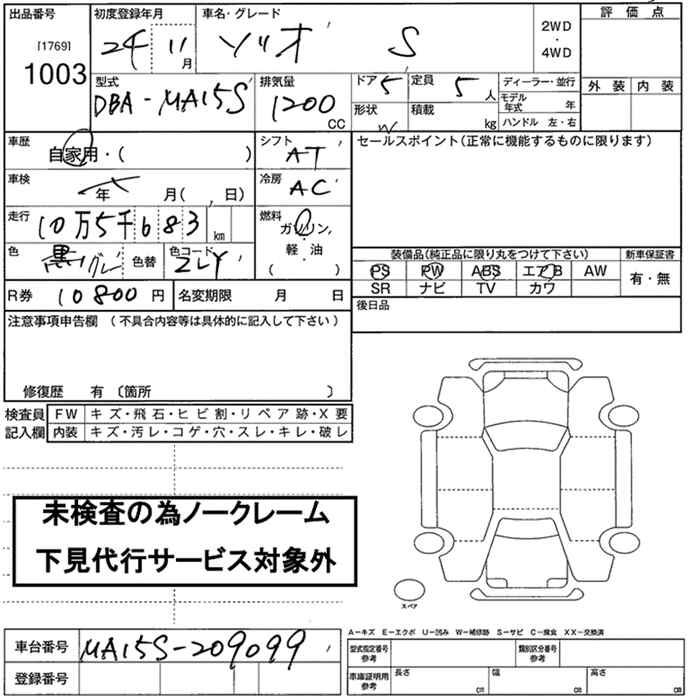 出品番号 初度登録年月 車名・グレード 評価点
[1769] 1003 24 11月 ソリオ S 2WD・4WD 外装 内装
型式 排気量 ドア 5 定員 5人 ディーラー・並行
DBA-MA15S 1200 CC 形状 W 積載 kg モデル年式 年
ハンドル 左・右
車歴 自家用・( ) シフト AT セールスポイント(正常に機能するものに限ります)
車検 年 月( , 日) 冷房 AC
走行 10万5千683 km 燃料 ガソリン,
色 黒/グレー 色替 色コード ZLY 軽・油
( )
装備品(純正品に限り丸をつけて下さい) 新車保証書
PS PW ABS エアB AW 有・無
SR ナビ TV カワ
R券 10800円 名変期限 月 日 後日品
注意事項申告欄 (不具合内容等は具体的に記入して下さい)
修復歴 有 〔箇所 〕
検査員 FW キズ・飛石・ヒビ割・リペア跡・X要
記入欄 内装 キズ・汚レ・コゲ・穴・スレ・キレ・破レ
未検査の為ノークレーム
下見代行サービス対象外
スペア
A-キズ E-エクボ U-凹み W-補修跡 S-サビ C-腐食 XX-交換済
車台番号 MA15S-209099 型式指定番号 参考 類別区分番号 参考
登録番号 車庫証明用 参考 長さ cm 幅 cm 高さ cm